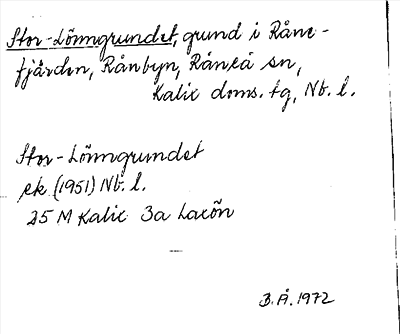 Stor-Lönngrundet, grund i Råne-
fjärden, Rånbyn, Råneå sn,
Kalix doms. tg, Nb. l.
Stor-Lönngrundet
ek. (1951) Nb. l.
25 M Kalix 3a Laxön
B.Å. 1972